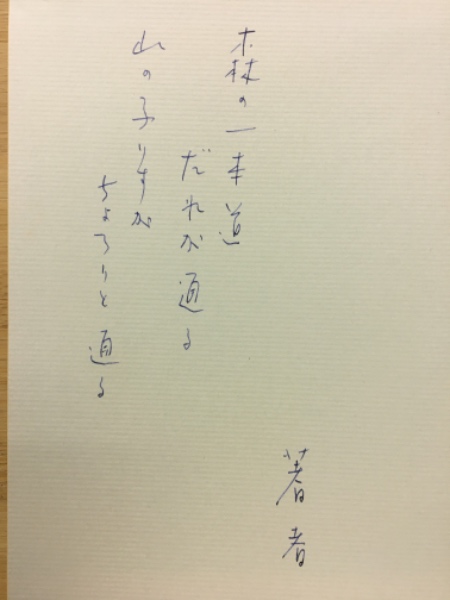 森の一本道
だれが通る
山の子りすが
ちょろりと通る
著者